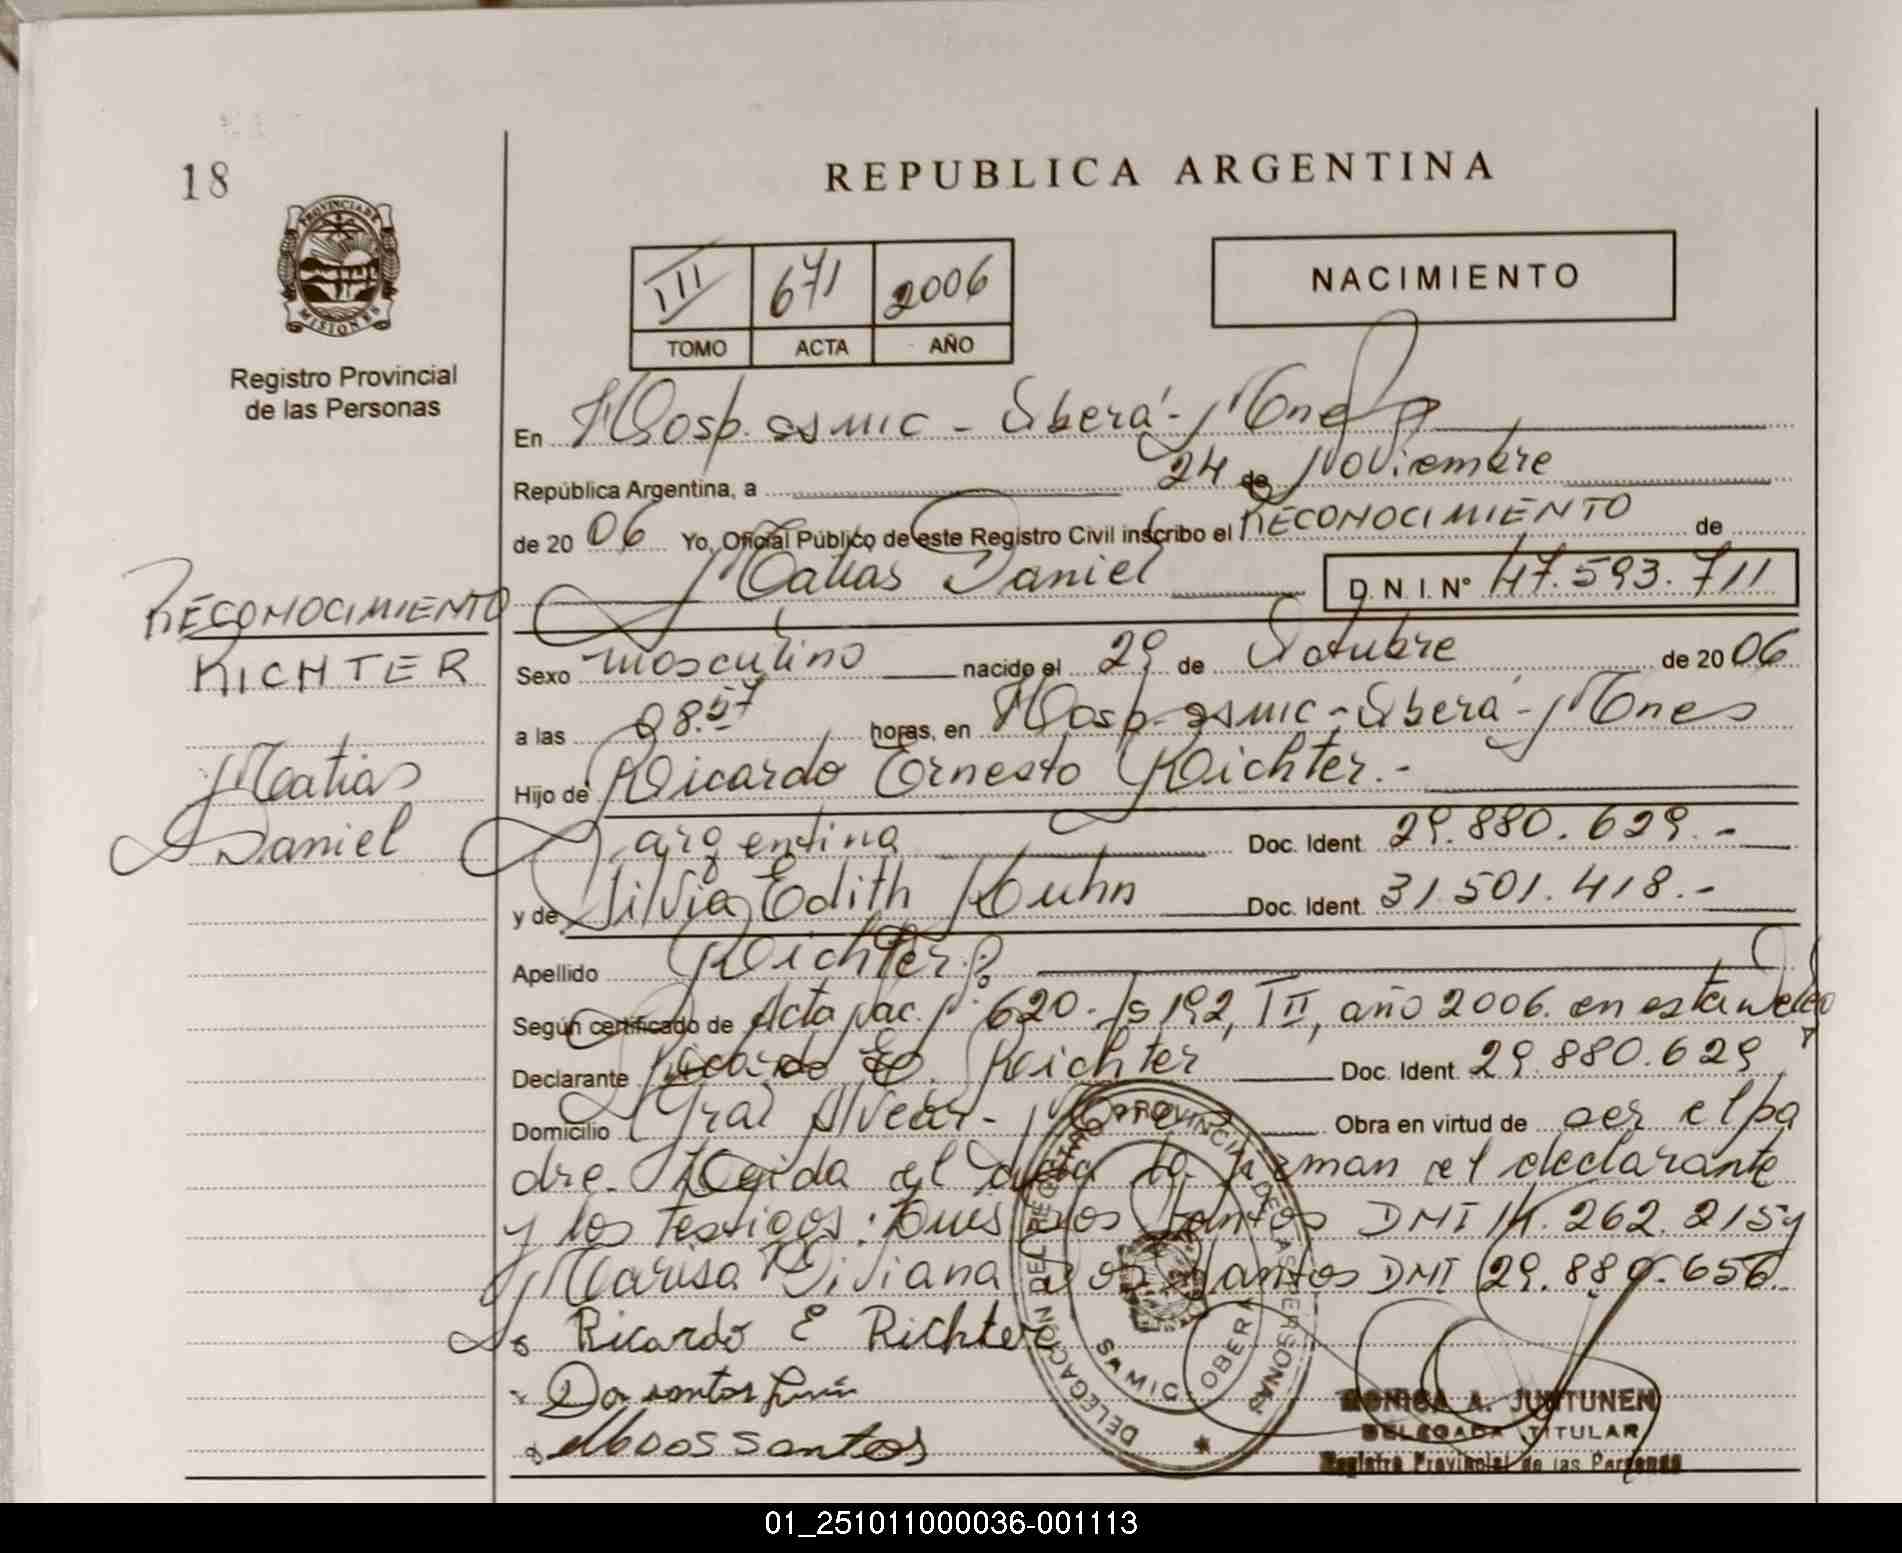 18
REPUBLICA ARGENTINA
PROVINCIA DE
MISIONES
Registro Provincial
de las Personas
III 671 2006
TOMO ACTA AÑO
NACIMIENTO
En Hosp. SAMIC - Oberá - Mnes
República Argentina, a 24 de Noviembre
de 20 06 Yo, Oficial Público de este Registro Civil inscribo el RECONOCIMIENTO de
Matias Daniel D. N. I. N° 47.593.711
RECONOCIMIENTO
RICHTER
Matias
Daniel
Sexo masculino nacido el 29 de Octubre de 20 06
a las 08.57 horas, en Hosp. SAMIC - Oberá - Mnes
Hijo de Ricardo Ernesto Richter.-
argentina Doc. Ident. 29.880.629.-
y de Silvia Edith Kuhn Doc. Ident. 31.501.418.-
Apellido Richter
Según certificado de Acta Nac. Nº 620. Fs 192, TII, año 2006. en esta Deleg
Declarante Ricardo E. Richter Doc. Ident. 29.880.629
Domicilio Gral Alvear - Mnes Obra en virtud de ser el pa
dre. Leida el acta la firman el declarante
y los testigos: Luis Dos Santos DNI 14.262.215 y
Marisa Viviana Dos Santos DNI 29.880.656.
Ricardo E Richter
Dos santos Luis
M Dos santos
DELEGACIÓN DEL REGISTRO PROVINCIAL DE LAS PERSONAS
SAMIC - OBERA
MONICA A. JUNTUNEN
DELEGADA TITULAR
Registro Provincial de las Personas
01_251011000036-001113